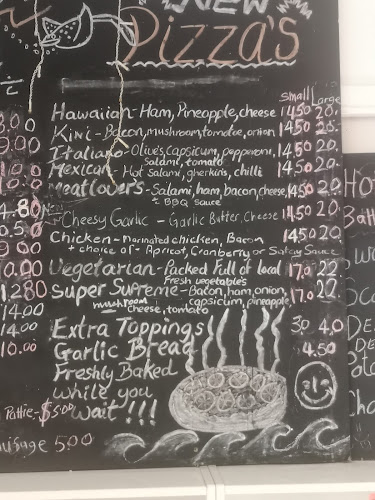 NEW
Pizza's
Small Large
Hawaiian - Ham, Pineapple, cheese 14.50 20.
Kiwi - Bacon, mushroom, tomatoe, onion 14.50 20.
Italiano - Olives, capsicum, pepperoni, 14.50 20.
salami, tomato
Mexican - Hot Salami, gherkins, chilli 14.50 20.
Meatlover's - Salami, ham, bacon, cheese, 14.50 20.
+ BBQ Sauce
Cheesy Garlic - Garlic Butter, Cheese 14.50 20.
Chicken - Marinated chicken, Bacon 14.50 20.
+ choice of - Apricot, Cranberry or Satay Sauce
Vegetarian - Packed Full of local 17.0 22.
Fresh vegetables
Super Supreme - Bacon, ham, onion, 17.0 22.
mushroom capsicum, pineapple,
cheese, tomato
Extra Toppings 30 4.0
Garlic Bread 4.50
Freshly Baked
while you
wait!!!
9.00
10.0
4.80
0.50
9.00
10.00
12.80
14.00
14.00
10.00
Pattie - $5.00
ausage 5.00